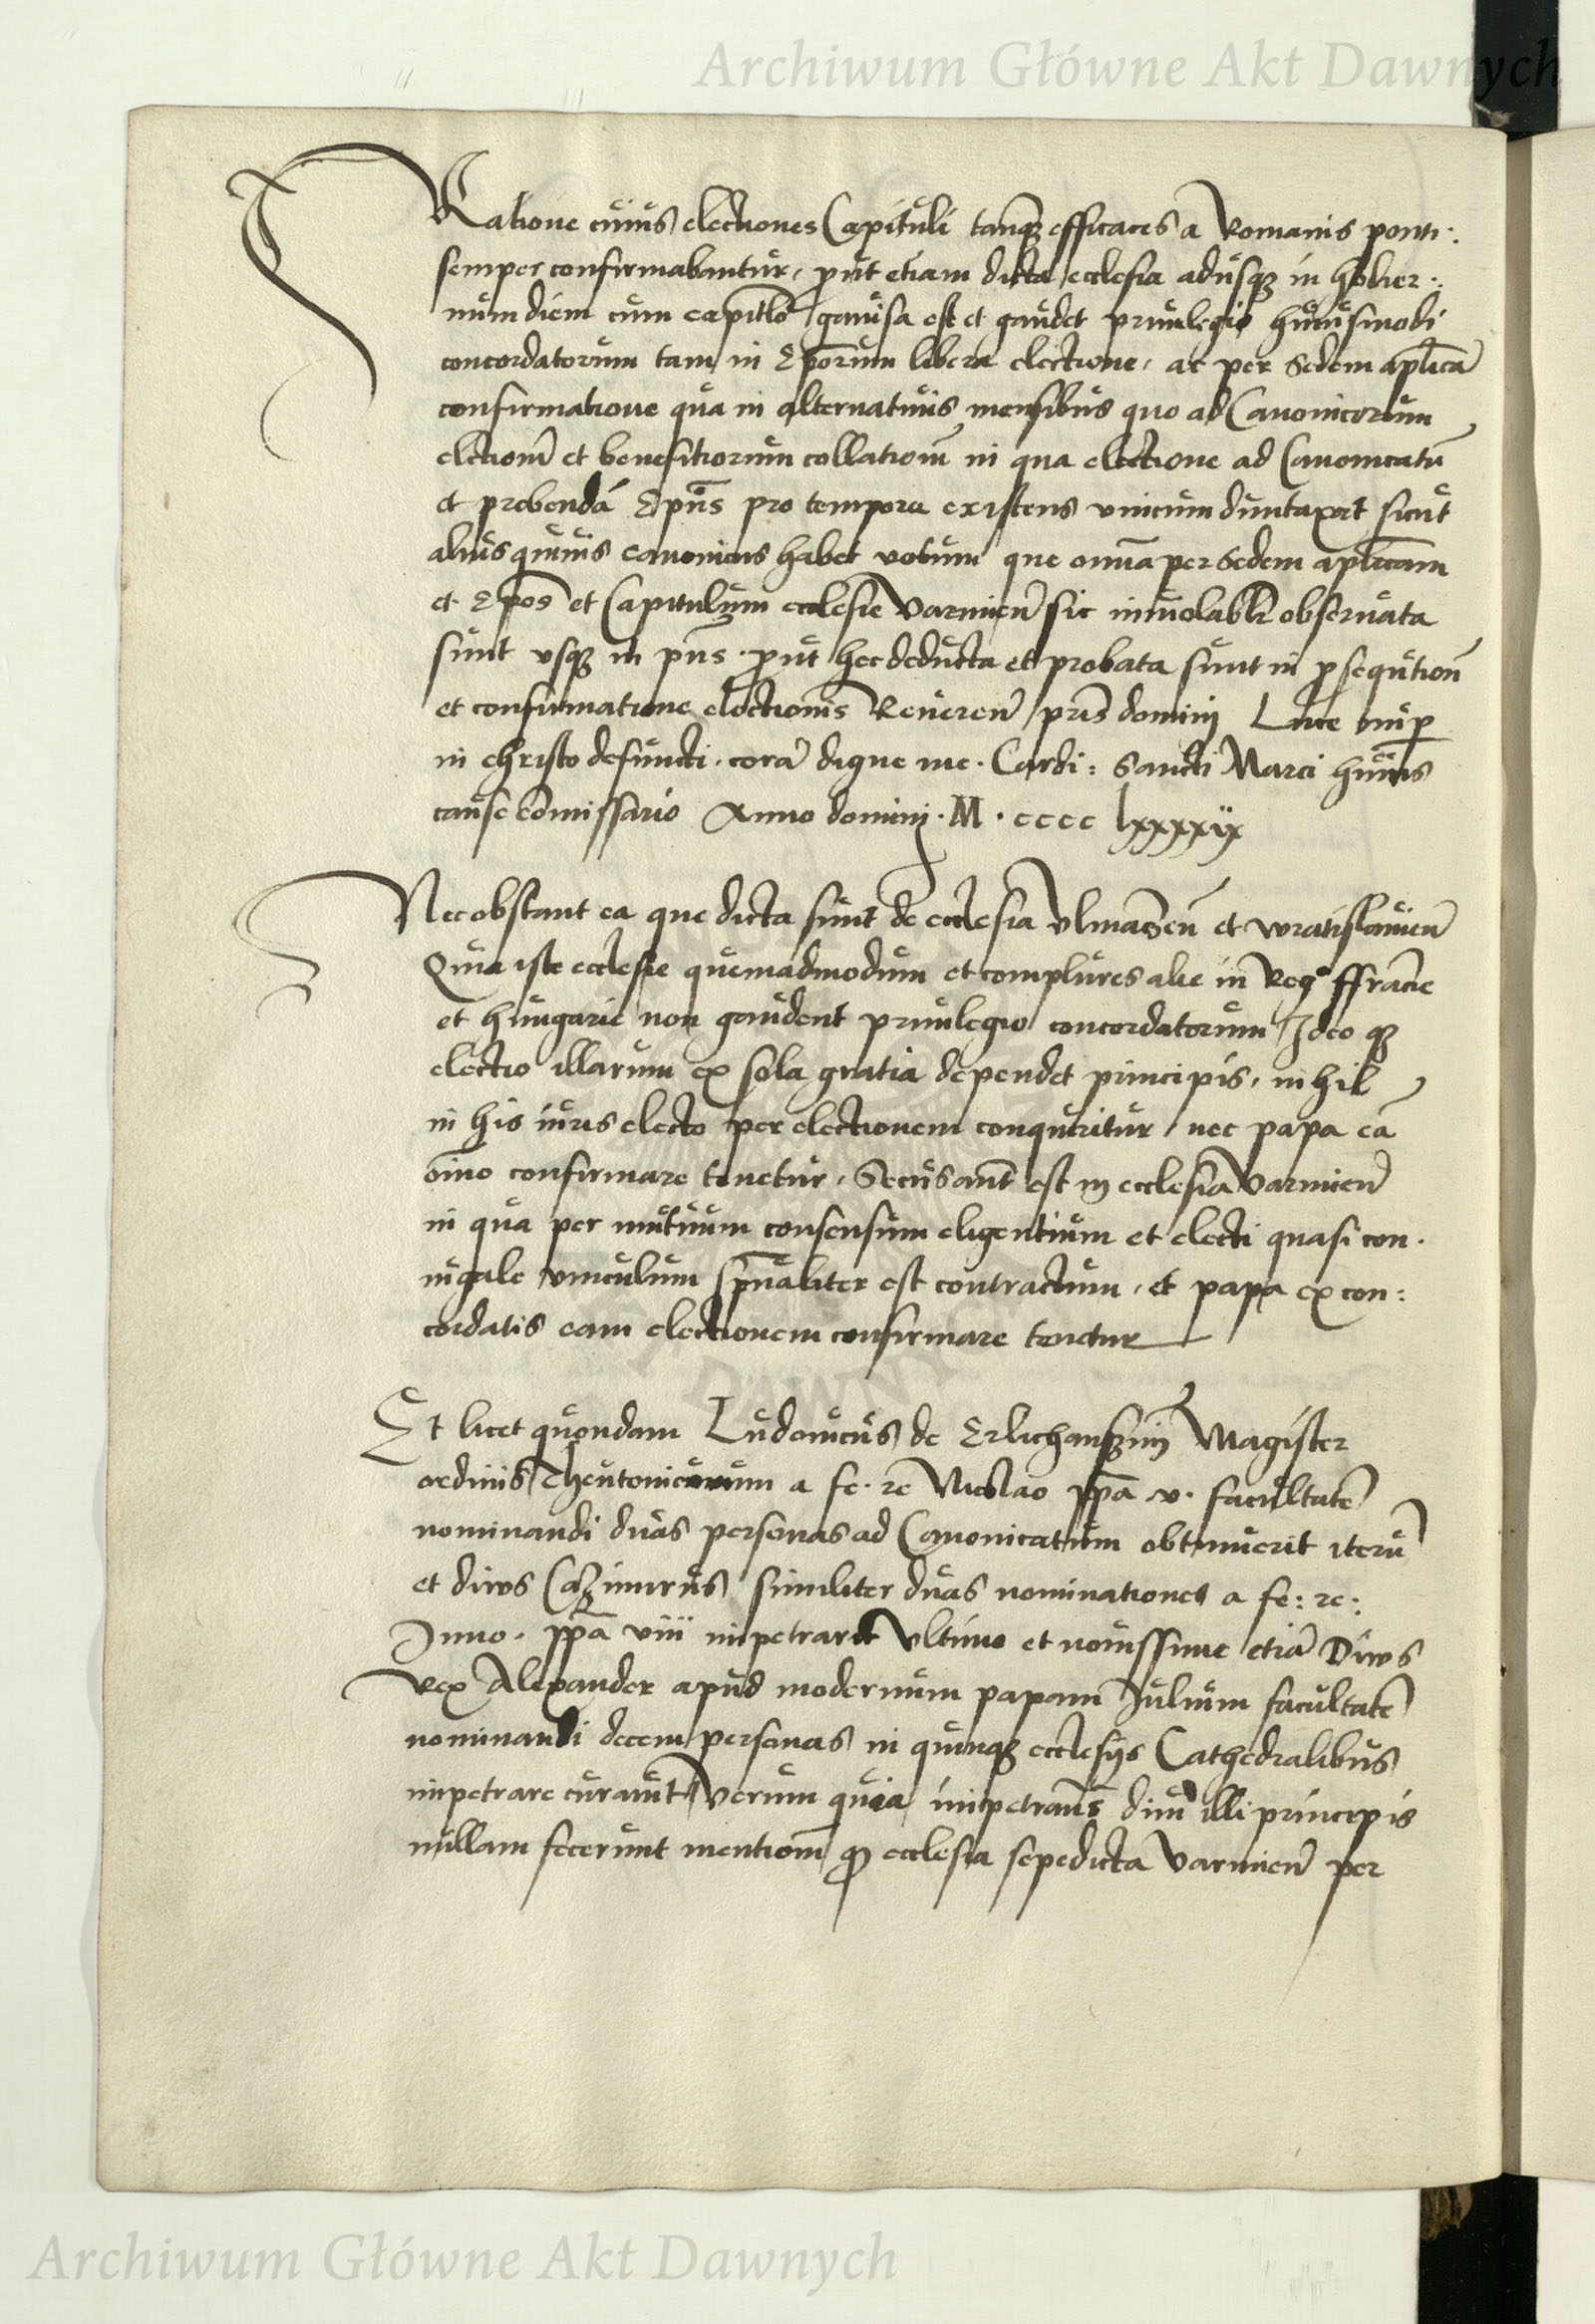 Archiwum Główne Akt Dawnych
Ratione cuius electiones Capituli tanq3 efficaces a Romanis ponti:
semper confirmabantur, prout etiam dicta ecclesia adusq3 in hodier:
num diem cum capitlo gauisa est et gaudet priuilegio huiusmodi
concordatorum tam in Eporum libera electione, ac per Sedem aplicā
confirmatione qua in alternatiuis mensibus quo ad Canonicorum
elctionē et benefitiorum collationē in qua electione ad Canonicatū
et prebendā Epūs pro tempora existens vnicum duntaxat sicut
alius quiuis canonicus habet votum que omnia per Sedem aplicam
et Epos et Capitulum ecclesie Varmieñ sic inuiolabłr obseruata
sunt vsq3 in pñs. prout hec deducta et probata sunt in psequtionē
et confirmatione electionis Reuereñ pris dominj Luce nup
in christo defuncti. corā digne me. Cardi: Sancti Marci huius
cause cōmissario Anno dominj. M. cccc lxxxxix
Nec obstant ea que dicta sunt de ecclesia Vlmaceñ et wratislauieñ
Quia iste ecclesie quemadmodum et complures alie in Regº ffrancie
et hungarie non gaudent priuilegio concordatorum Ideo q3
electio illarum ex sola gratia dependet principis, nihil
in his iuris electo per electionem conquiritur nec papa eā
oīno confirmare tenetur, Secus aūt est in ecclesia Varmieñ
in qua per mutuum consensum eligentium et electi quasi con.
iugale vinculum spūaliter est contractum, et papa ex con:
cordatis eam electionem confirmare tenetur
Et licet quondam Ludouicus de Erlichauszenn Magister
ordinis Theutonicorum a fe. re Nicolao ppā v. facultatē
nominandi duas personas ad Canonicatum obtinuerit iterū
et diuus Cazimirus similiter duas nominationes a fe: re:
Inno. ppā viii impetrarit Vltimo et nouissime etiā Diuus
rex Alexander apud modernum papam Julium facultatē
nominandi decem personas in quinq3 ecclesijs Cathedralibus
impetrare curauit Verum quia impetrans diui illi principis
nullam fecerunt mentionē q ecclesia sepedicta Varmieñ per
Archiwum Główne Akt Dawnych